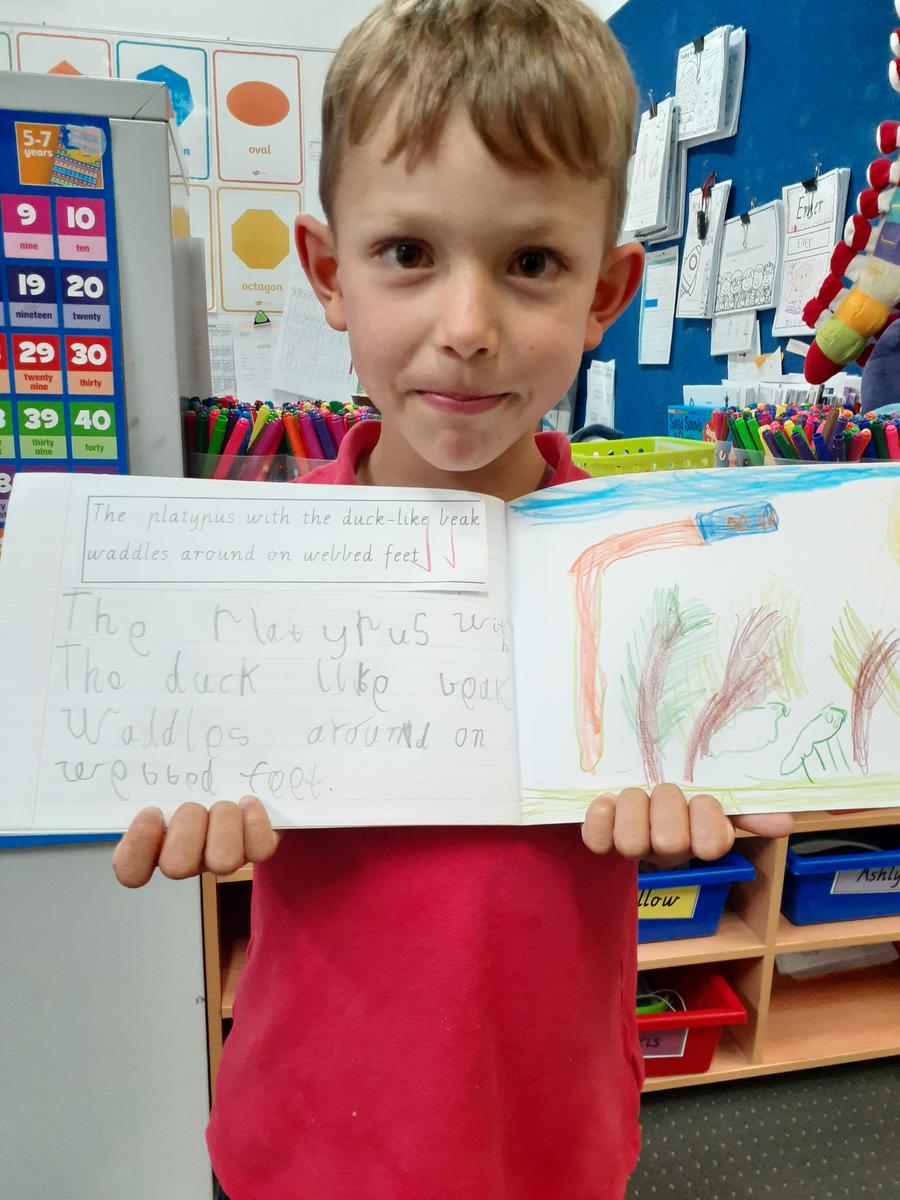 5-7
years
9
nine
10
ten
19
nineteen
20
twenty
29
twenty
nine
30
thirty
39
thirty
nine
40
forty
oval
octagon
The platypus with the duck-like beak
waddles around on webbed feet.
The Platypus with
The duck like beak
Waddles around on
webbed feet.
Speed Sounds
Ashly
llow
ris